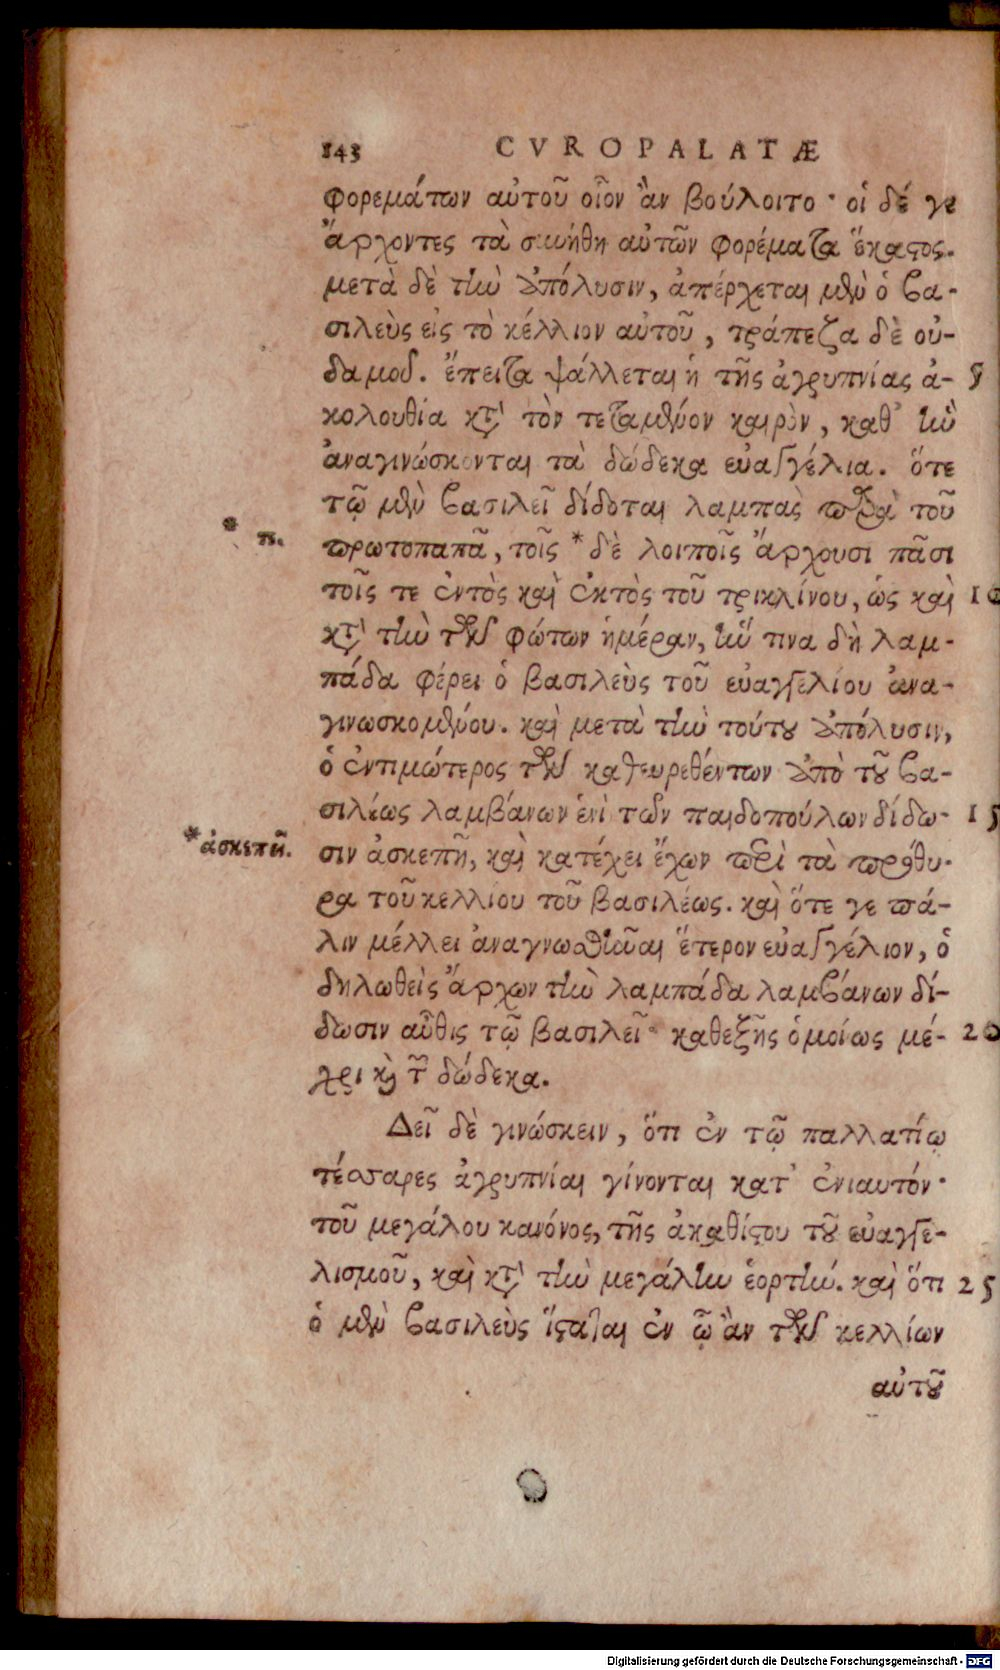 143 CVROPALATÆ
φορεμάτων αὐτοῦ οἷον ἂν βούλοιτο· οἱ δέ γε
ἄρχοντες τὰ συνήθη αὐτῶν φορέματα ἕκαστος.
μετὰ δὲ τὴν ἀπόλυσιν, ἀπέρχεται μὲν ὁ βα-
σιλεὺς εἰς τὸ κέλλιον αὐτοῦ, τράπεζα δὲ οὐ-
δαμοῦ. ἔπειτα ψάλλεται ἡ τῆς ἀγρυπνίας ἀ- 5
κολουθία κτ' τὸν τεταμένον καιρὸν, καθ' ἣν
ἀναγινώσκονται τὰ δώδεκα εὐαγγέλια. ὅτε
τῷ μὲν βασιλεῖ δίδοται λαμπὰς παρὰ τοῦ
* π.
πρωτοπαπᾶ, τοῖς * δὲ λοιποῖς ἄρχουσι πᾶσι
τοῖς τε ἐντὸς καὶ ἐκτὸς τοῦ τρικλίνου, ὡς καὶ 10
κτ' τὴν τῶν φώτων ἡμέραν, ἥν τινα δὴ λαμ-
πάδα φέρει ὁ βασιλεὺς τοῦ εὐαγγελίου ἀνα-
γινωσκομένου. καὶ μετὰ τὴν τούτου ἀπόλυσιν,
ὁ ἐντιμώτερος τῶν κατευρεθέντων ἀπὸ τοῦ βα-
σιλέως λαμβάνων ἑνὶ τῶν παιδοπούλων δίδω- 15
*ἀσκεπεῖ.
σιν ἀσκεπῆ, καὶ κατέχει ἔχων περὶ τὰ πρόθυ-
ρα τοῦ κελλίου τοῦ βασιλέως. καὶ ὅτε γε πά-
λιν μέλλει ἀναγνωσθῆναι ἕτερον εὐαγγέλιον, ὁ
δηλωθεὶς ἄρχων τὴν λαμπάδα λαμβάνων δί-
δωσιν αὖθις τῷ βασιλεῖ· καθεξῆς ὁμοίως μέ- 20
χρι καὶ τῶν δώδεκα.
Δεῖ δὲ γινώσκειν, ὅτι ἐν τῷ παλλατίῳ
τέσσαρες ἀγρυπνίαι γίνονται κατ' ἐνιαυτόν·
τοῦ μεγάλου κανόνος, τῆς ἀκαθίστου τοῦ εὐαγγε-
λισμοῦ, καὶ κτ' τὴν μεγάλην ἑορτήν. καὶ ὅτι 25
ὁ μὲν βασιλεὺς ἵσταται ἐν ᾧ ἂν τῶν κελλίων
αὐτοῦ
Digitalisierung gefördert durch die Deutsche Forschungsgemeinschaft - DFG